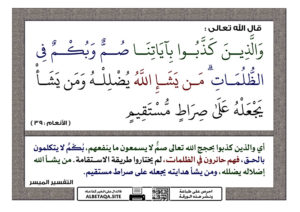 قال الله تعالى :
وَالَّذِينَ كَذَّبُوا بِآيَاتِنَا صُمٌّ وَبُكْمٌ فِي
الظُّلُمَاتِ ۗ مَن يَشَإِ اللَّهُ يُضْلِلْهُ وَمَن يَشَأْ
يَجْعَلْهُ عَلَىٰ صِرَاطٍ مُّسْتَقِيمٍ
( الأنعام : ٣٩ )
أي والذين كذبوا بحجج الله تعالى صمٌّ لا يسمعون ما ينفعهم، بُكْمٌ لا يتكلمون
بالحق، فهم حائرون في الظلمات، لم يختاروا طريقة الاستقامة. من يشأ الله
إضلاله يضلله، ومن يشأ هدايته يجعله على صراط مستقيم.
التفسير الميسر
احرص على طباعة
ونشر هذه الورقة
ALBETAQA.SITE